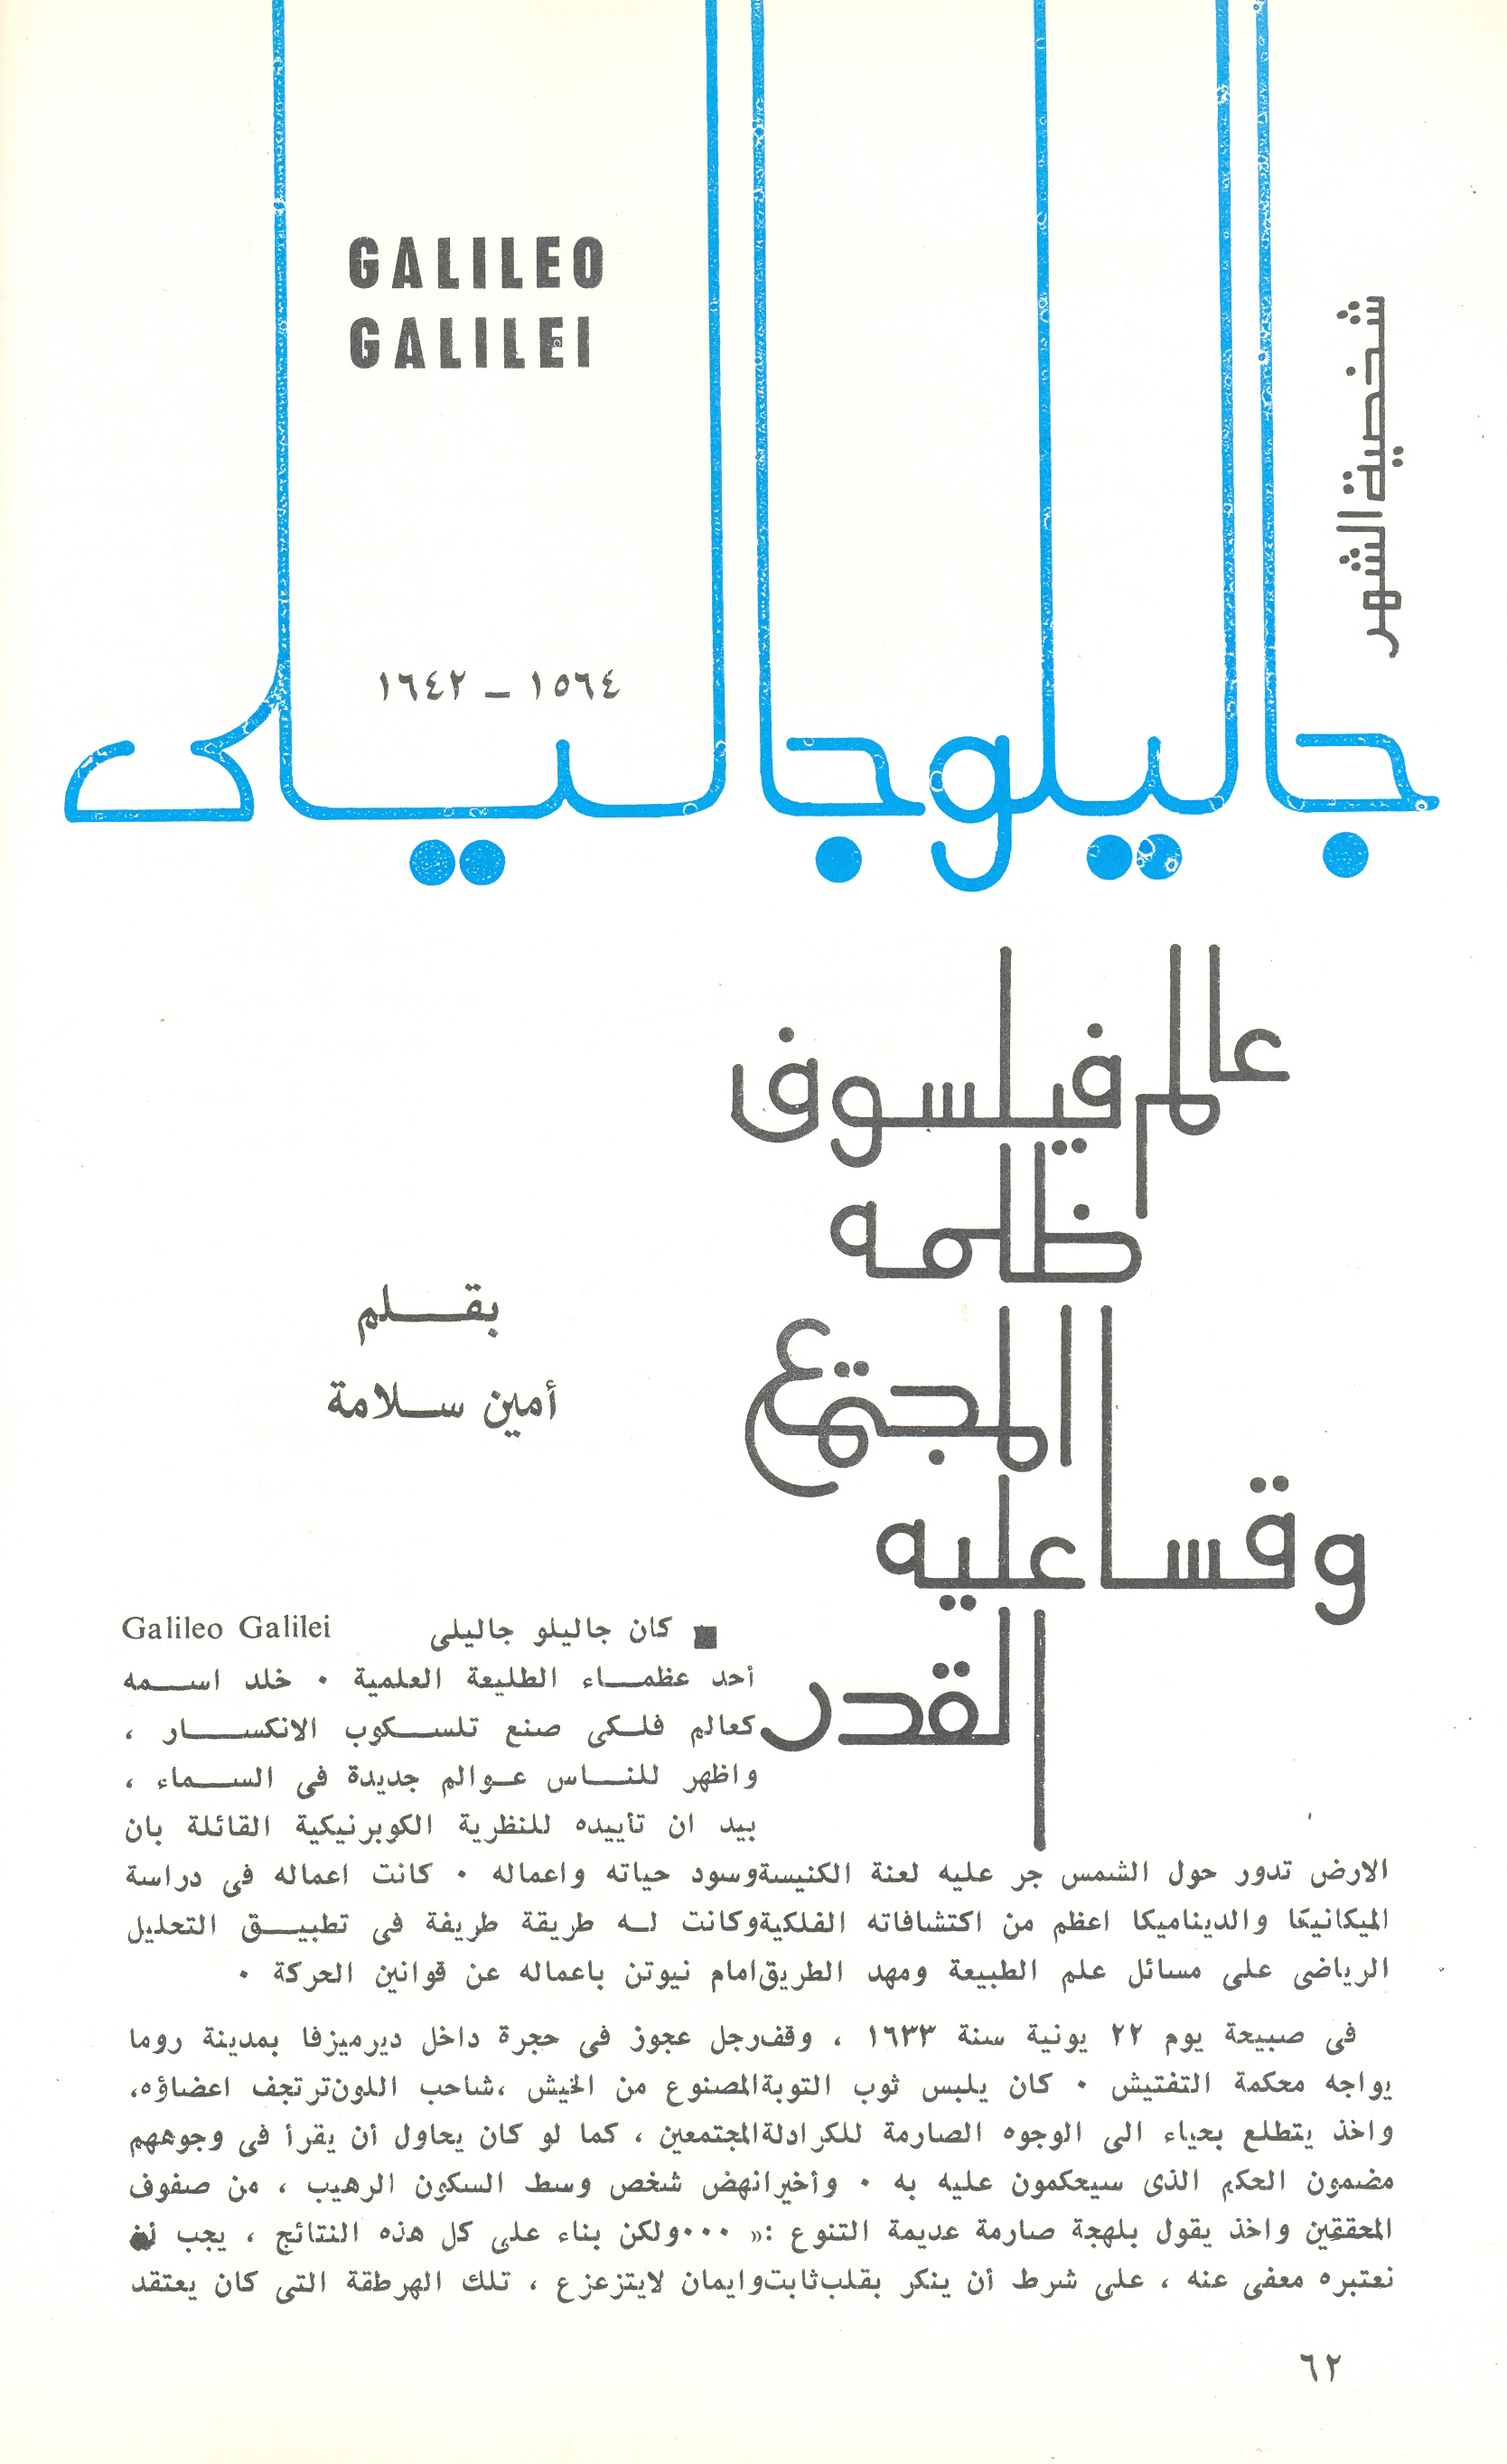 شخصية الشهر
GALILEO
GALILEI
١٥٦٤ – ١٦٤٢
جاليلو جاليلى
عالم فيلسوف
ظلمه
المجتمع
وقسا عليه
القدر
بقـــلم
أمين ســلامة
■ كان جاليلو جاليلى Galileo Galilei
أحد عظمــاء الطليعة العلمية ٠ خلد اســـمه
كعالم فلــكى صنع تلســكوب الانكســـار ،
واظهر للنــاس عـوالم جديدة فى الســـماء ،
بيد ان تأييده للنظرية الكوبرنيكية القائلة بان
الارض تدور حول الشمس جر عليه لعنة الكنيسة وسود حياته واعماله ٠ كانت اعماله فى دراسة
الميكانيكا والديناميكا اعظم من اكتشافاته الفلكية وكانت لــه طريقة طريفة فى تطبيــق التحليل
الرياضى على مسائل علم الطبيعة ومهد الطريق امام نيوتن باعماله عن قوانين الحركة ٠
فى صبيحة يوم ٢٢ يونية سنة ١٦٣٣ ، وقف رجل عجوز فى حجرة داخل دير ميزفا بمدينة روما
يواجه محكمة التفتيش ٠ كان يلبس ثوب التوبة المصنوع من الخيش ، شاحب اللون ترتجف اعضاؤه،
واخذ يتطلع بحياء الى الوجوه الصارمة للكرادلة المجتمعين ، كما لو كان يحاول أن يقرأ فى وجوههم
مضمون الحكم الذى سيحكمون عليه به ٠ وأخيرا نهض شخص وسط السكون الرهيب ، من صفوف
المحققين واخذ يقول بلهجة صارمة عديمة التنوع :« ٠٠٠ ولكن بناء على كل هذه النتائج ، يجب أن
نعتبره معفى عنه ، على شرط أن ينكر بقلب ثابت وايمان لايتزعزع ، تلك الهرطقة التى كان يعتقد
٦٢